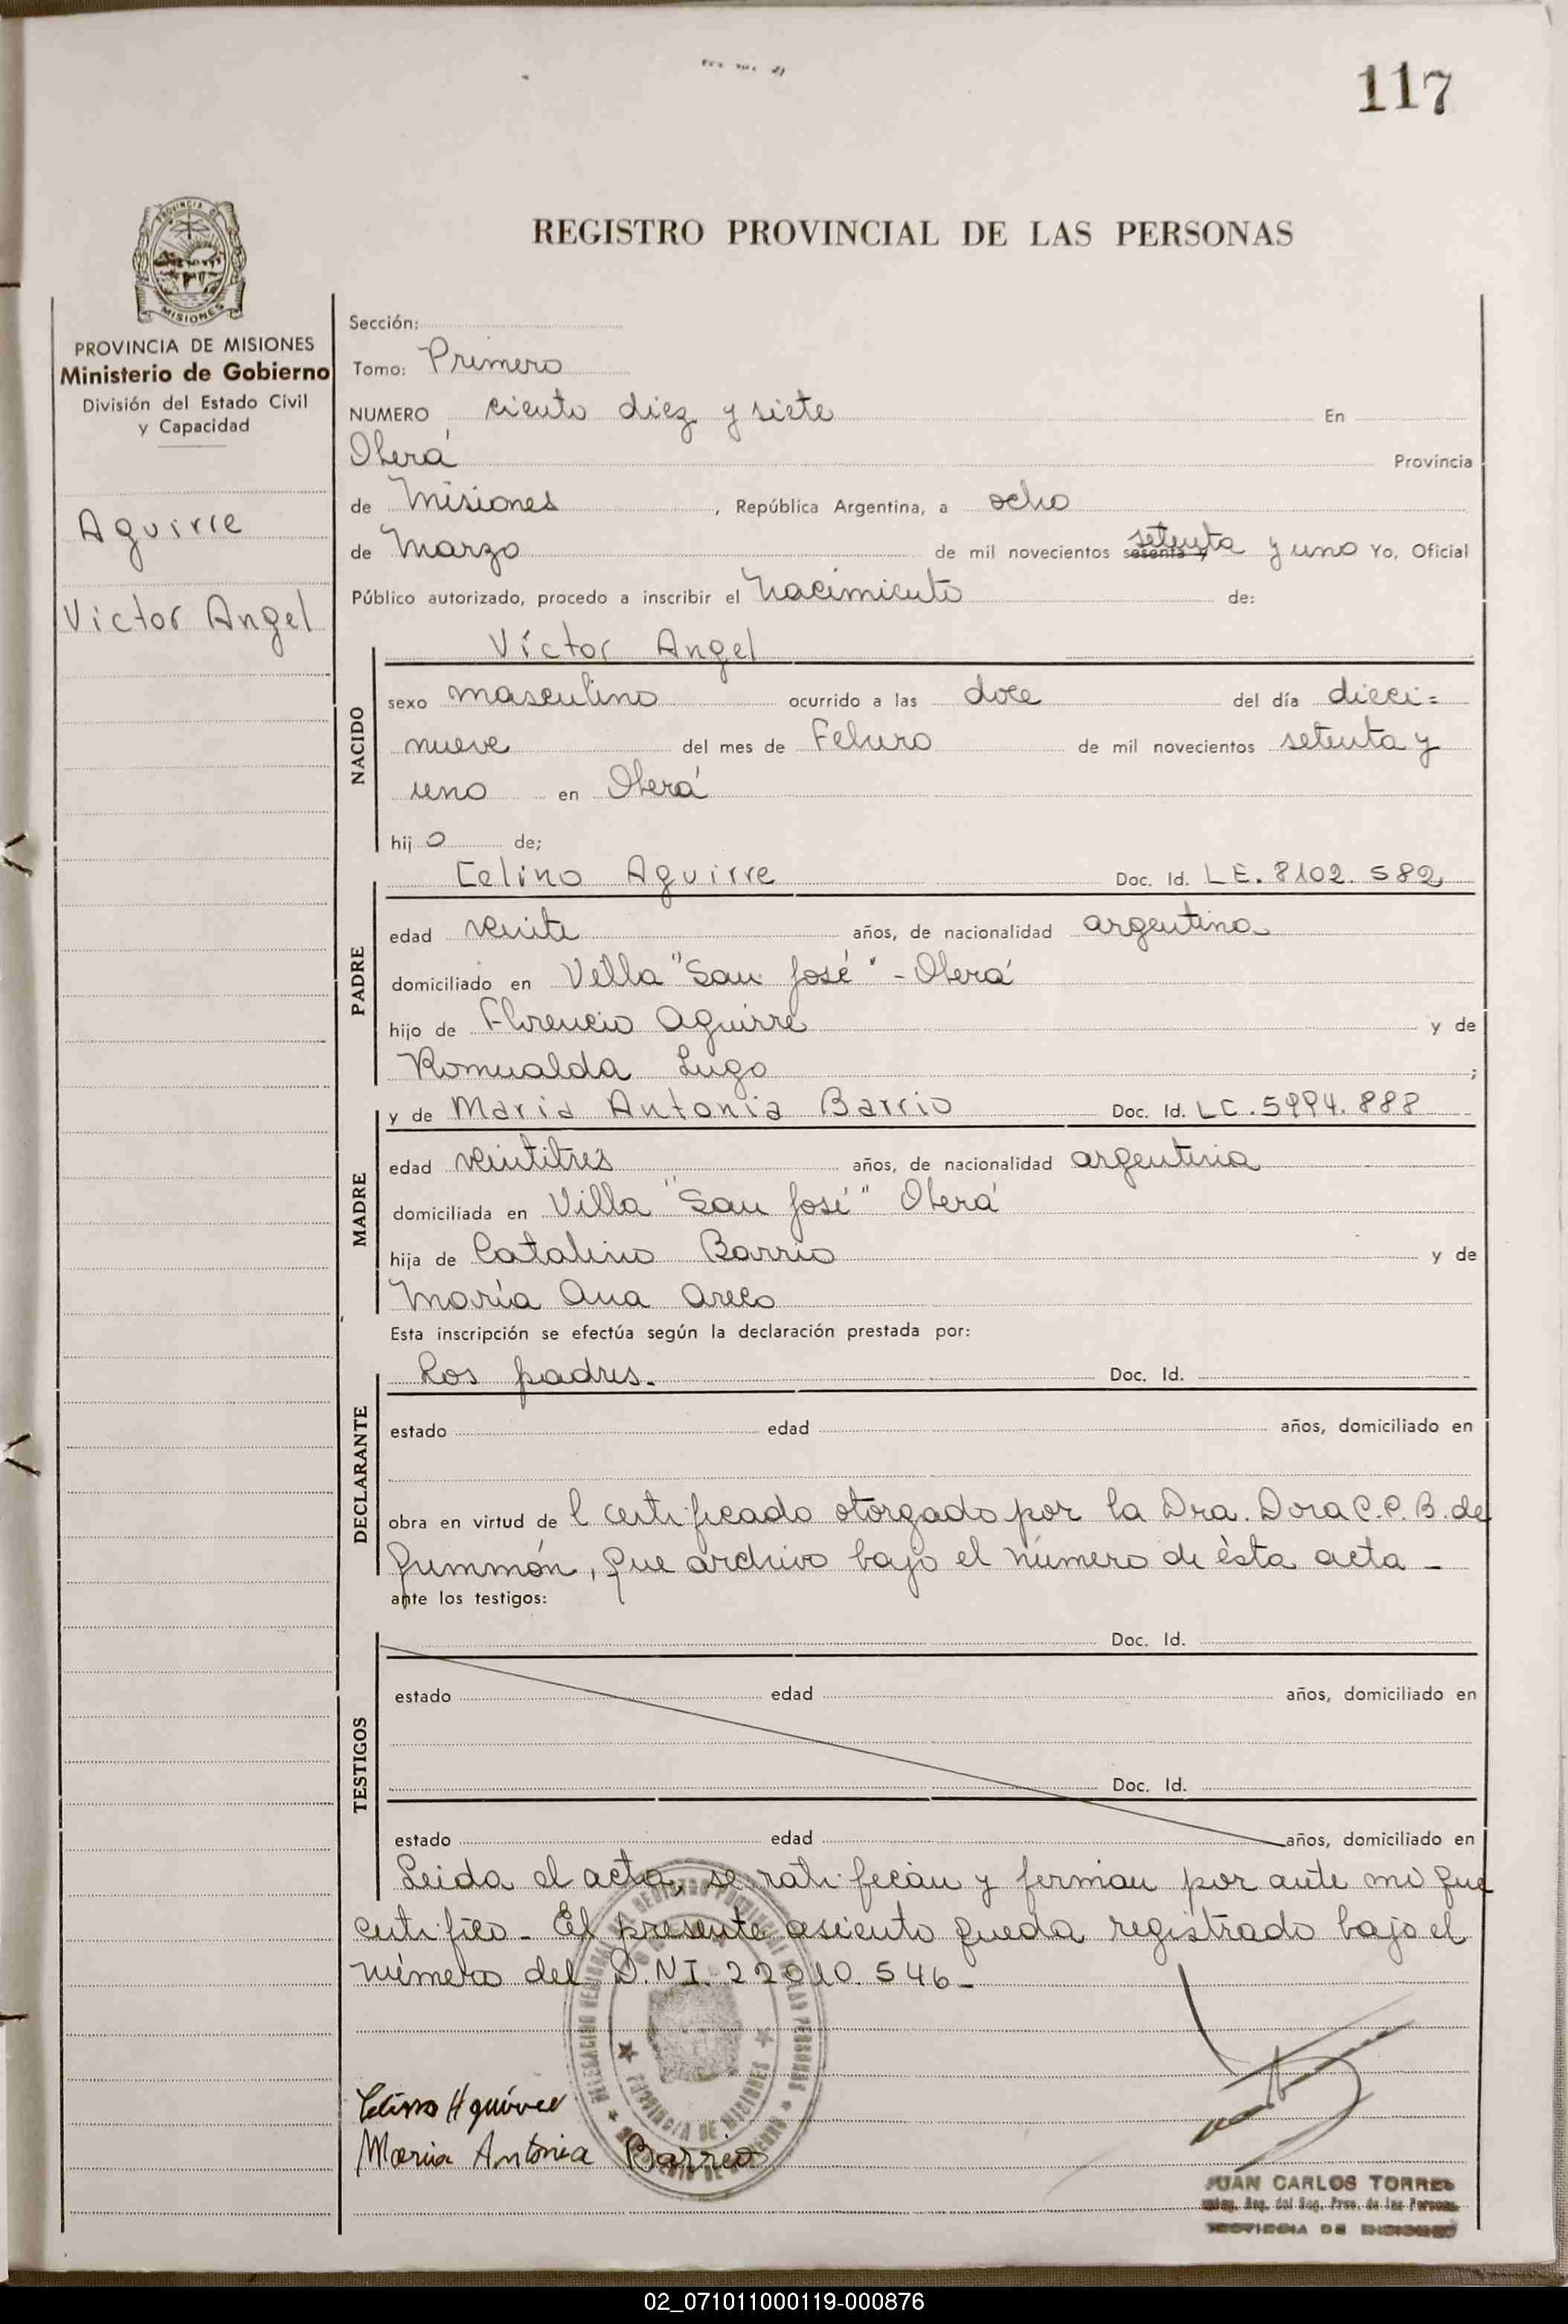 117
REGISTRO PROVINCIAL DE LAS PERSONAS
PROVINCIA DE MISIONES
Ministerio de Gobierno
División del Estado Civil
y Capacidad
Aguirre
Victor Angel
Sección:
Tomo: Primero
NUMERO ciento diez y siete En
Oberá Provincia
de Misiones, República Argentina, a ocho
de Marzo de mil novecientos sesenta y setenta y uno Yo, Oficial
Público autorizado, procedo a inscribir el Nacimiento de:
NACIDO
Víctor Angel
sexo masculino ocurrido a las doce del día dieci=
nueve del mes de Febrero de mil novecientos setenta y
uno en Oberá
hijo de;
PADRE
Celino Aguirre Doc. Id. LE. 8102.582
edad veinte años, de nacionalidad argentina
domiciliado en Villa "San José" - Oberá
hijo de Florencio Aguirre y de
Romualda Lugo ;
MADRE
y de Maria Antonia Barrio Doc. Id. LC. 5994.888
edad veintitres años, de nacionalidad argentina
domiciliada en Villa "San José" Oberá
hija de Catalino Barrio y de
María Ana Areco
Esta inscripción se efectúa según la declaración prestada por:
DECLARANTE
Los padres. Doc. Id.
estado edad años, domiciliado en
obra en virtud del certificado otorgado por la Dra. Dora C.P.B. de
que archivo bajo el número de ésta acta -
ante los testigos:
TESTIGOS
Doc. Id.
estado edad años, domiciliado en
Doc. Id.
estado edad años, domiciliado en
Leida el acta, se ratifican y firman por ante mi que
certifico - El presente asiento queda registrado bajo el
número del D.N.I. 22010.546-
Celino Aguirre
Maria Antonia Barrio
PROVINCIA DE MISIONES
JUAN CARLOS TORRES
PROVINCIA DE MISIONES
02_071011000119-000876